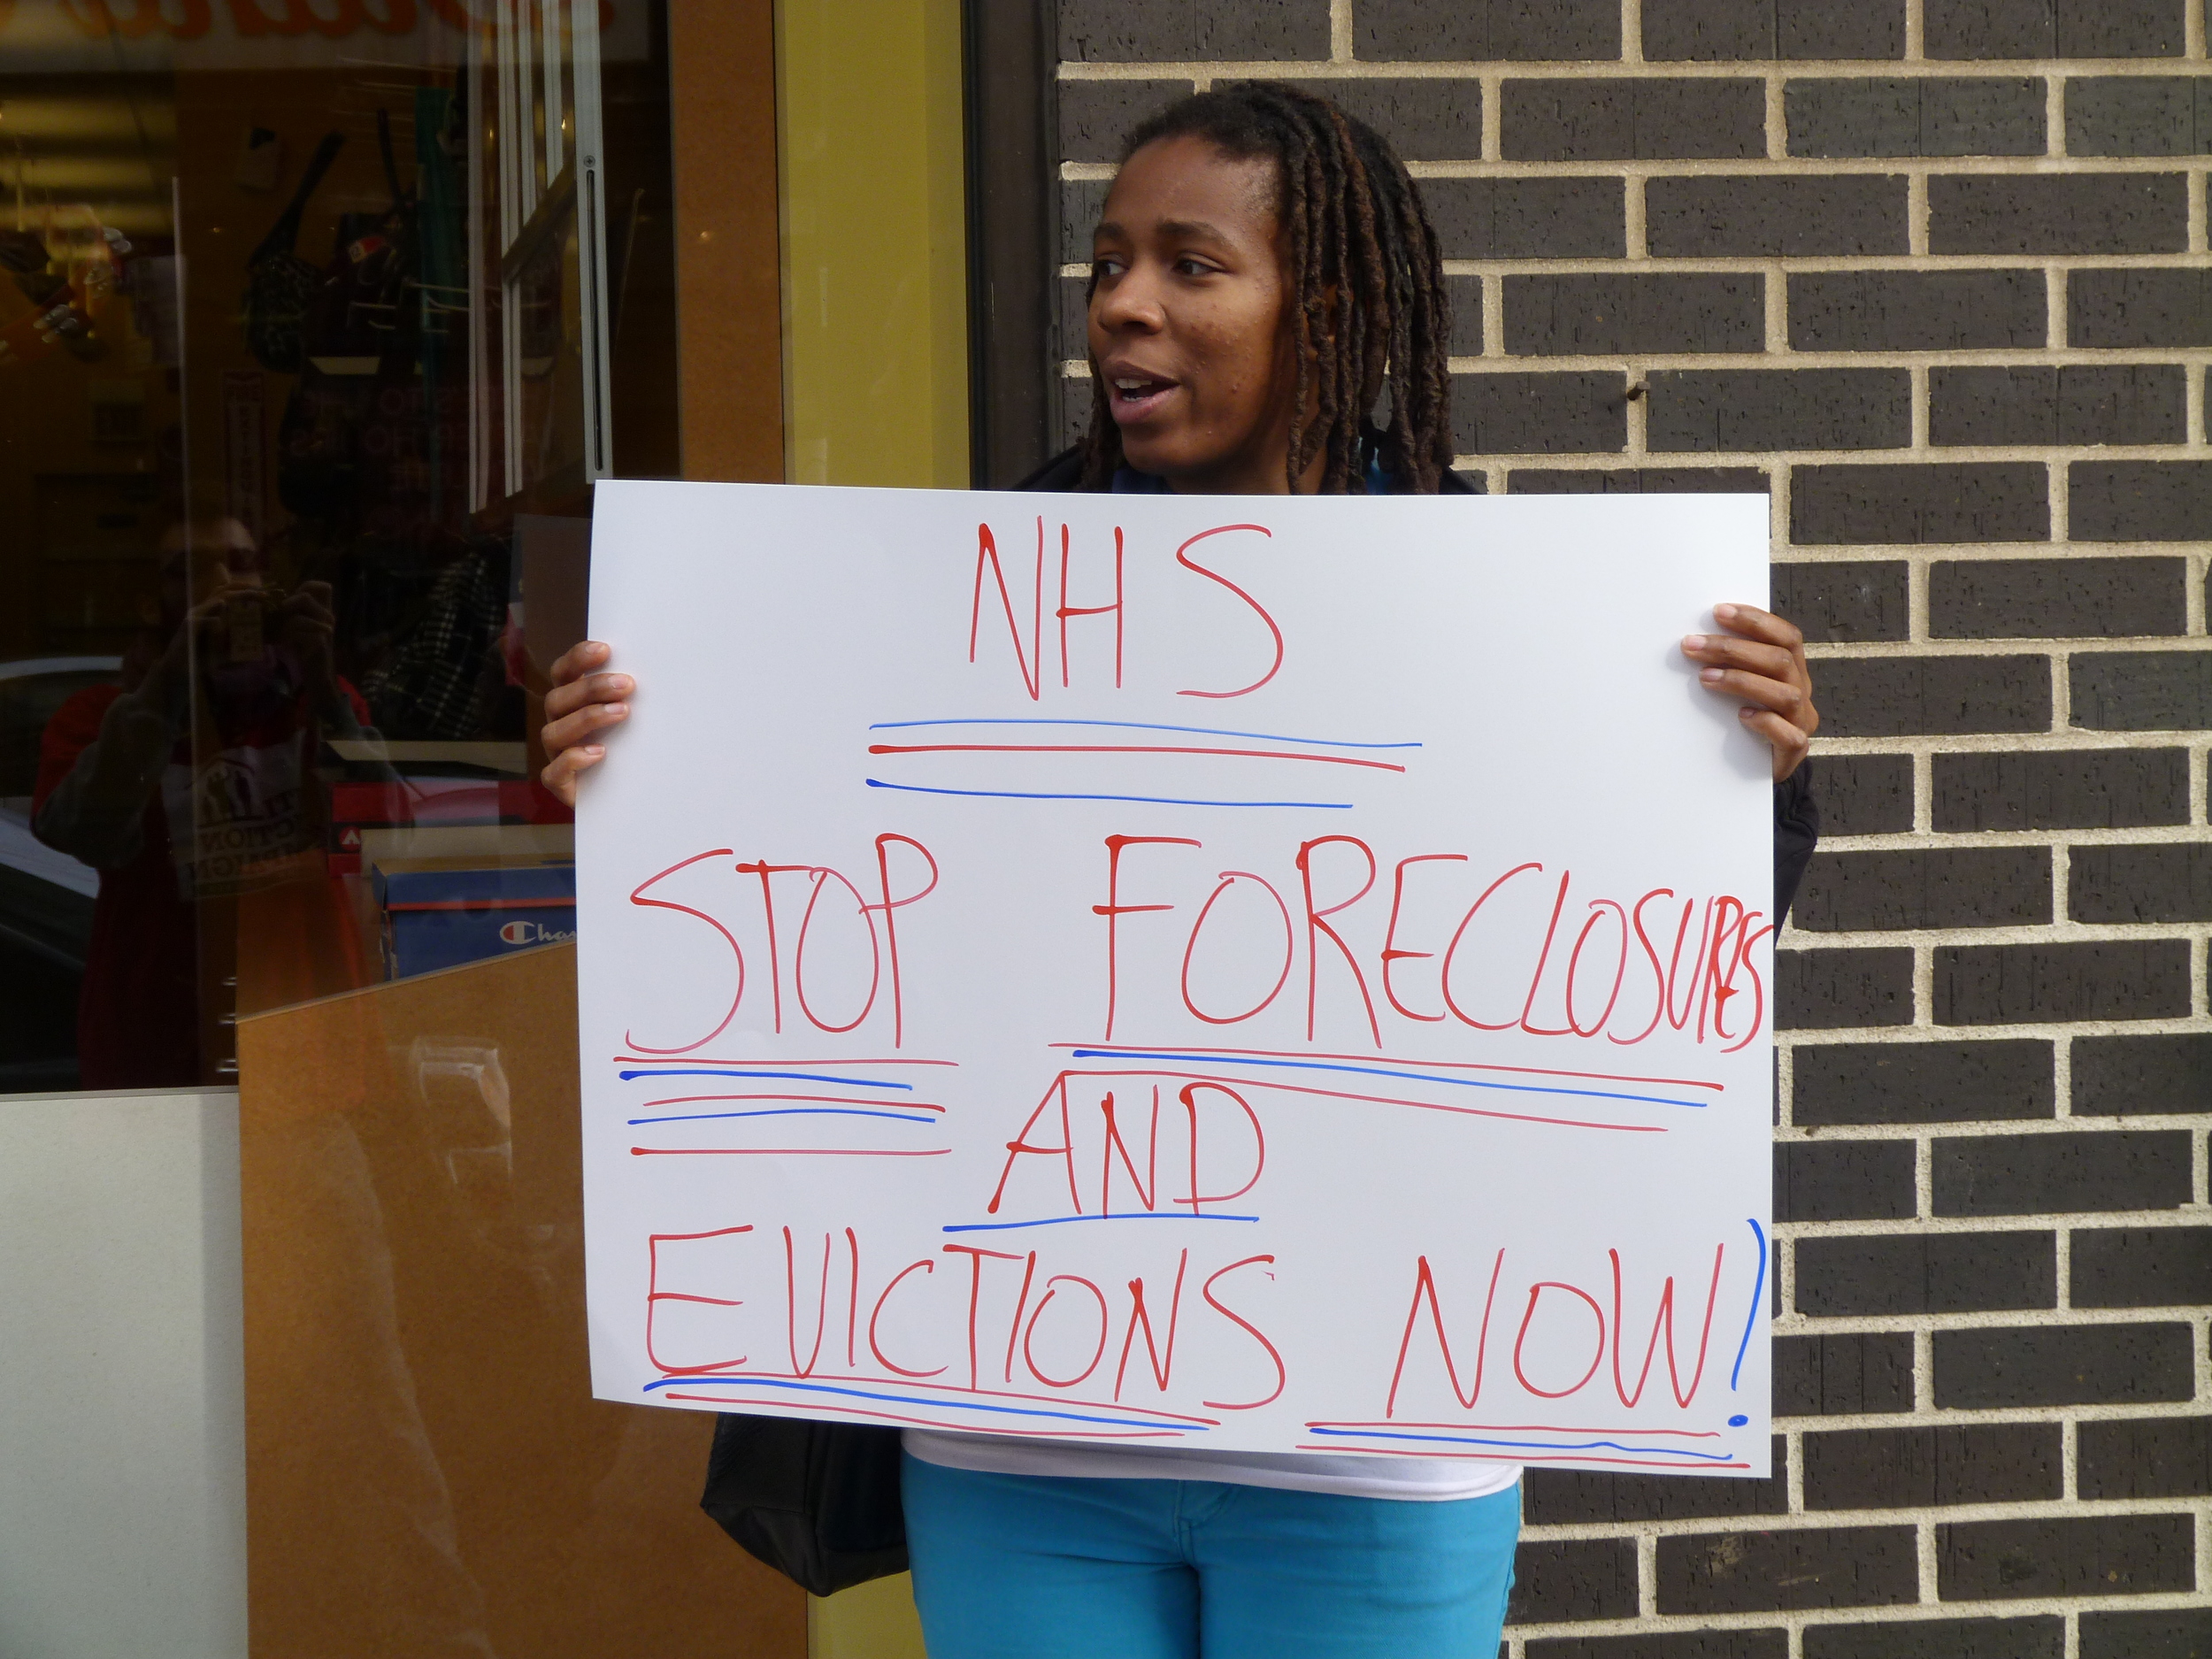 NHS
STOP FORECLOSURES
AND
EVICTIONS NOW!